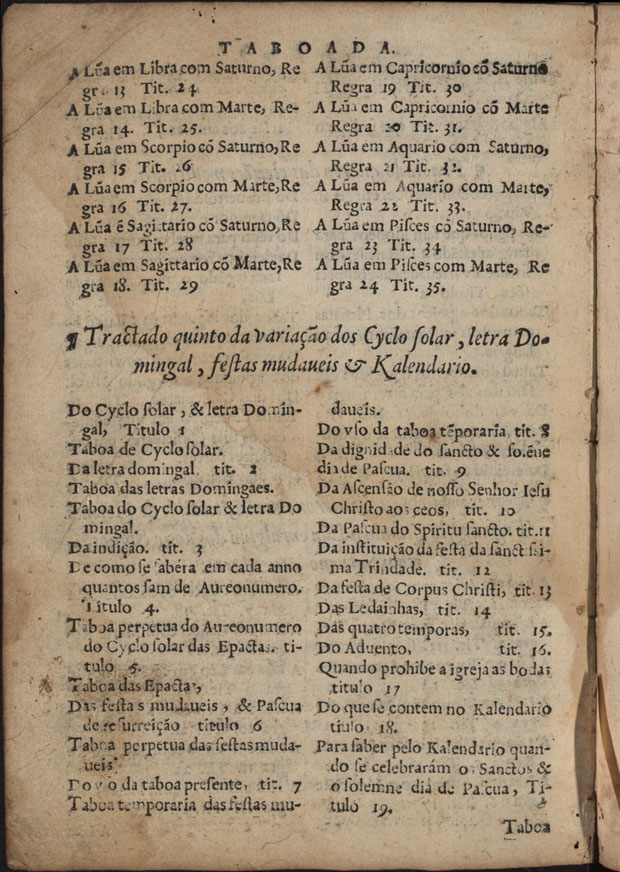 TABOADA.
A Lũa em Libra com Saturno, Re
gra 13 Tit. 24
A Lũa em Libra com Marte, Re-
gra 14. Tit. 25.
A Lũa em Scorpio cõ Saturno, Re
gra 15 Tit. 26
A Lũa em Scorpio com Marte, Re
gra 16 Tit. 27.
A Lũa ẽ Sagittario cõ Saturno, Re
gra 17 Tit. 28
A Lũa em Sagittario cõ Marte, Re
gra 18. Tit. 29
A Lũa em Capricornio cõ Saturno
Regra 19 Tit. 30
A Lũa em Capricornio cõ Marte
Regra 20 Tit. 31.
A Lũa em Aquario com Saturno,
Regra 21 Tit. 32.
A Lũa em Aquario com Marte,
Regra 22 Tit. 33.
A Lũa em Pisces cõ Saturno, Re-
gra 23 Tit. 34
A Lũa em Pisces com Marte, Re
gra 24 Tit. 35.
¶ Tractado quinto da variação dos Cyclo solar, letra Do-
mingal, festas mudaueis & Kalendario.
Do Cyclo solar, & letra Domin-
gal, Titulo 1
Taboa de Cyclo solar.
Da letra domingal tit. 2
Taboa das letras Domingaes.
Taboa do Cyclo solar & letra Do
mingal.
Da indição. tit. 3
De como se sabera em cada anno
quantos sam de Aureonumero.
Titulo 4.
Taboa perpetua do Aureonumero
do Cyclo solar das Epactas. ti-
tulo 5.
Taboa das Epactas,
Das festas mudaueis, & Pascua
de resurreição titulo 6
Taboa perpetua das festas muda-
ueis.
Do vso da taboa presente, tit. 7
Taboa temporaria das festas mu-
daueis.
Do vso da taboa tẽporaria tit. 8
Da dignidade do sancto & solẽne
dia de Pascua. tit. 9
Da Ascensão de nosso Senhor Iesu
Christo aos ceos, tit. 10
Da Pascua do Spiritu sancto. tit. 11
Da instituição da festa da sanctissi-
ma Trindade. tit. 12
Da festa de Corpus Christi, tit. 13
Das Ledainhas, tit. 14
Das quatro temporas, tit. 15.
Do Aduento, tit. 16.
Quando prohibe a igreja as bodas
titulo 17
Do que se contem no Kalendario
titulo 18.
Para saber pelo Kalendario quan-
do se celebrarám os Sanctos &
o solemne dia de Pascua, Ti-
tulo 19.
Taboa